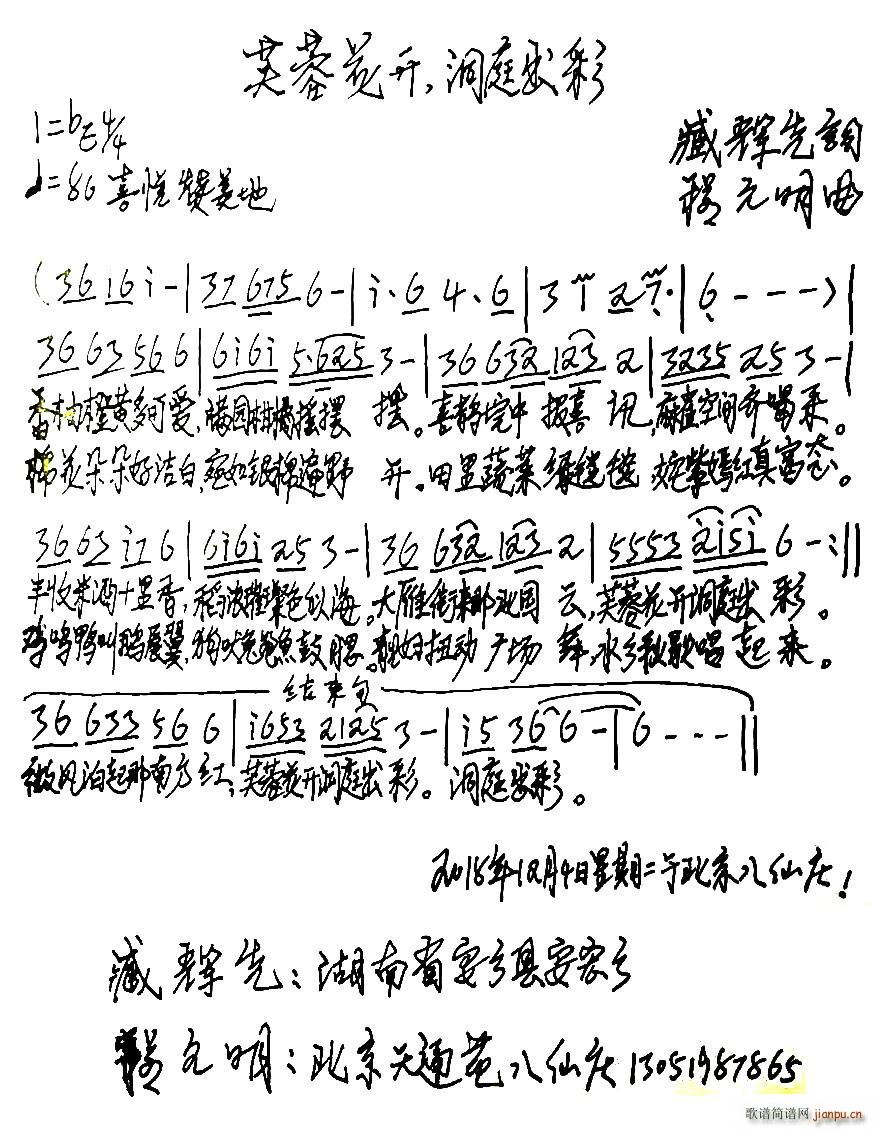 芙蓉花开,洞庭出彩
1=bE 4/4
臧辉先词
♩=86 喜悦赞美地
程元明曲
(36 16 i - | 37 675 6 - | i· 6 4· 6 | 3 1 2 7· | 6 - - - ) |
36 63 56 6 | 6i6i 5·625 3 - | 36 632 123 2 | 3235 25 3 - |
香柚橙黄多可爱,橘园柑橘摇摆 摆。喜鹊 中 报喜 讯,麻雀空间齐唱来。
棉花朵朵好洁白,宛如银棉遍野 开。田里蔬菜绿 姹紫嫣红真富态。
36 63 i7 6 | 6i6i 25 3 - | 36 632 123 2 | 5553 2i5i 6 - :||
丰收米酒十里香,稻浓 色似海。大雁衔来那北国 云,芙蓉花开洞庭出 彩。
鸡鸣鸭叫鹅展翼,狗吠兔 鱼鼓腮。 妇扭动广场 舞,水乡秋歌唱起来。
结束句
36 633 56 6 | i653 2125 3 - | i5 36 6 - | 6 - - - ||
微风 起那南方红,芙蓉花开洞庭出彩。洞庭出彩。
2018年12月4日星期二于北京八仙庄!
臧辉先:湖南省安乡县安农乡
程元明:北京天通苑八仙庄13051987865
歌谱简谱网 jianpu.cn